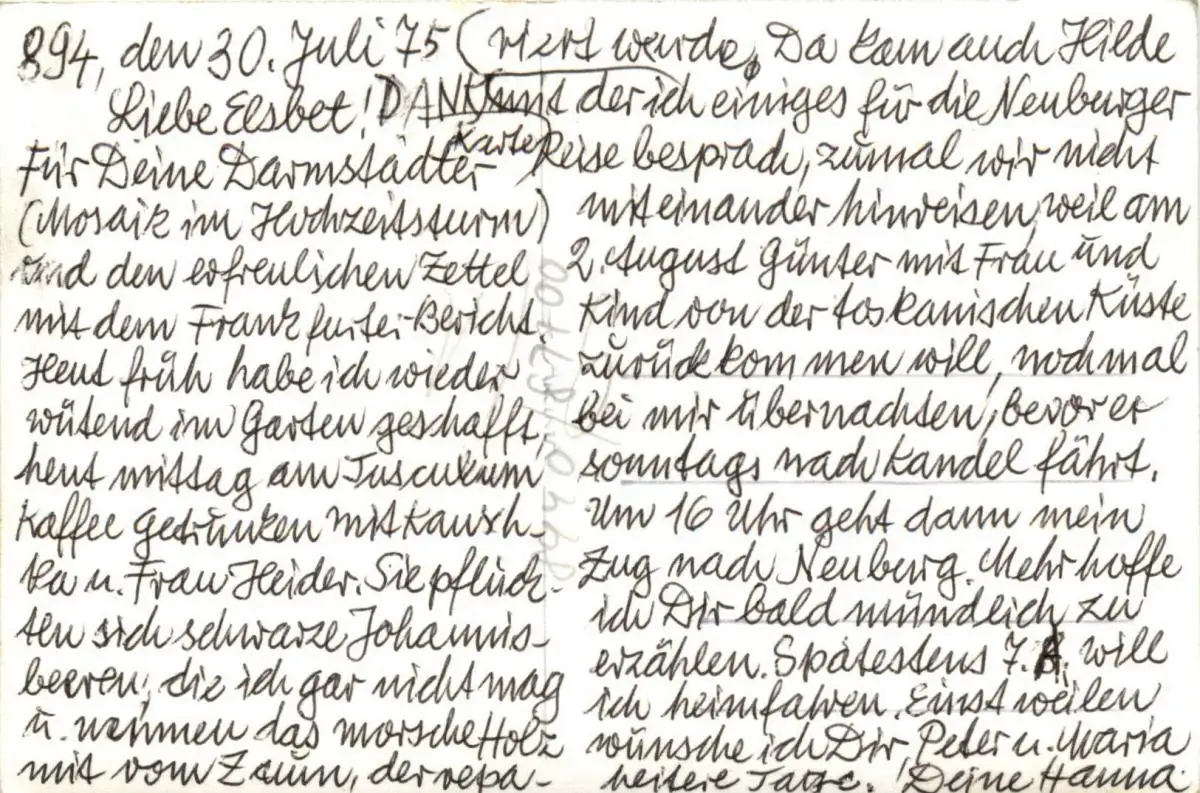 894, den 30. Juli 75
Liebe Elsbet! DANK
Für Deine Darmstädter Karte
(Mosaik im Hochzeitsturm)
und den erfreulichen Zettel
mit dem Frankfurter-Bericht.
Heut früh habe ich wieder
wütend im Garten geschafft,
heut mittag am Tusculum
Kaffee getrunken mit Kausch-
ka u. Frau Heider. Sie pflück-
ten sich schwarze Johannis-
beeren, die ich gar nicht mag
u. nahmen das morsche Holz
mit vom Zaun, der repa-
riert wurde. Da kam auch Hilde
mit der ich einiges für die Neuburger
Reise besprach, zumal wir nicht
miteinander hinreisen, weil am
2. August Günter mit Frau und
Kind von der toskanischen Küste
zurückkommen will, nochmal
bei mir übernachten, bevor er
sonntags nach Kandel fährt.
Um 16 Uhr geht dann mein
Zug nach Neuburg. Mehr hoffe
ich Dir bald mündlich zu
erzählen. Spätestens 7. A. will
ich heimfahren. Einstweilen
wünsche ich Dir, Peter u. Maria
heitere Tage. Deine Hanna.